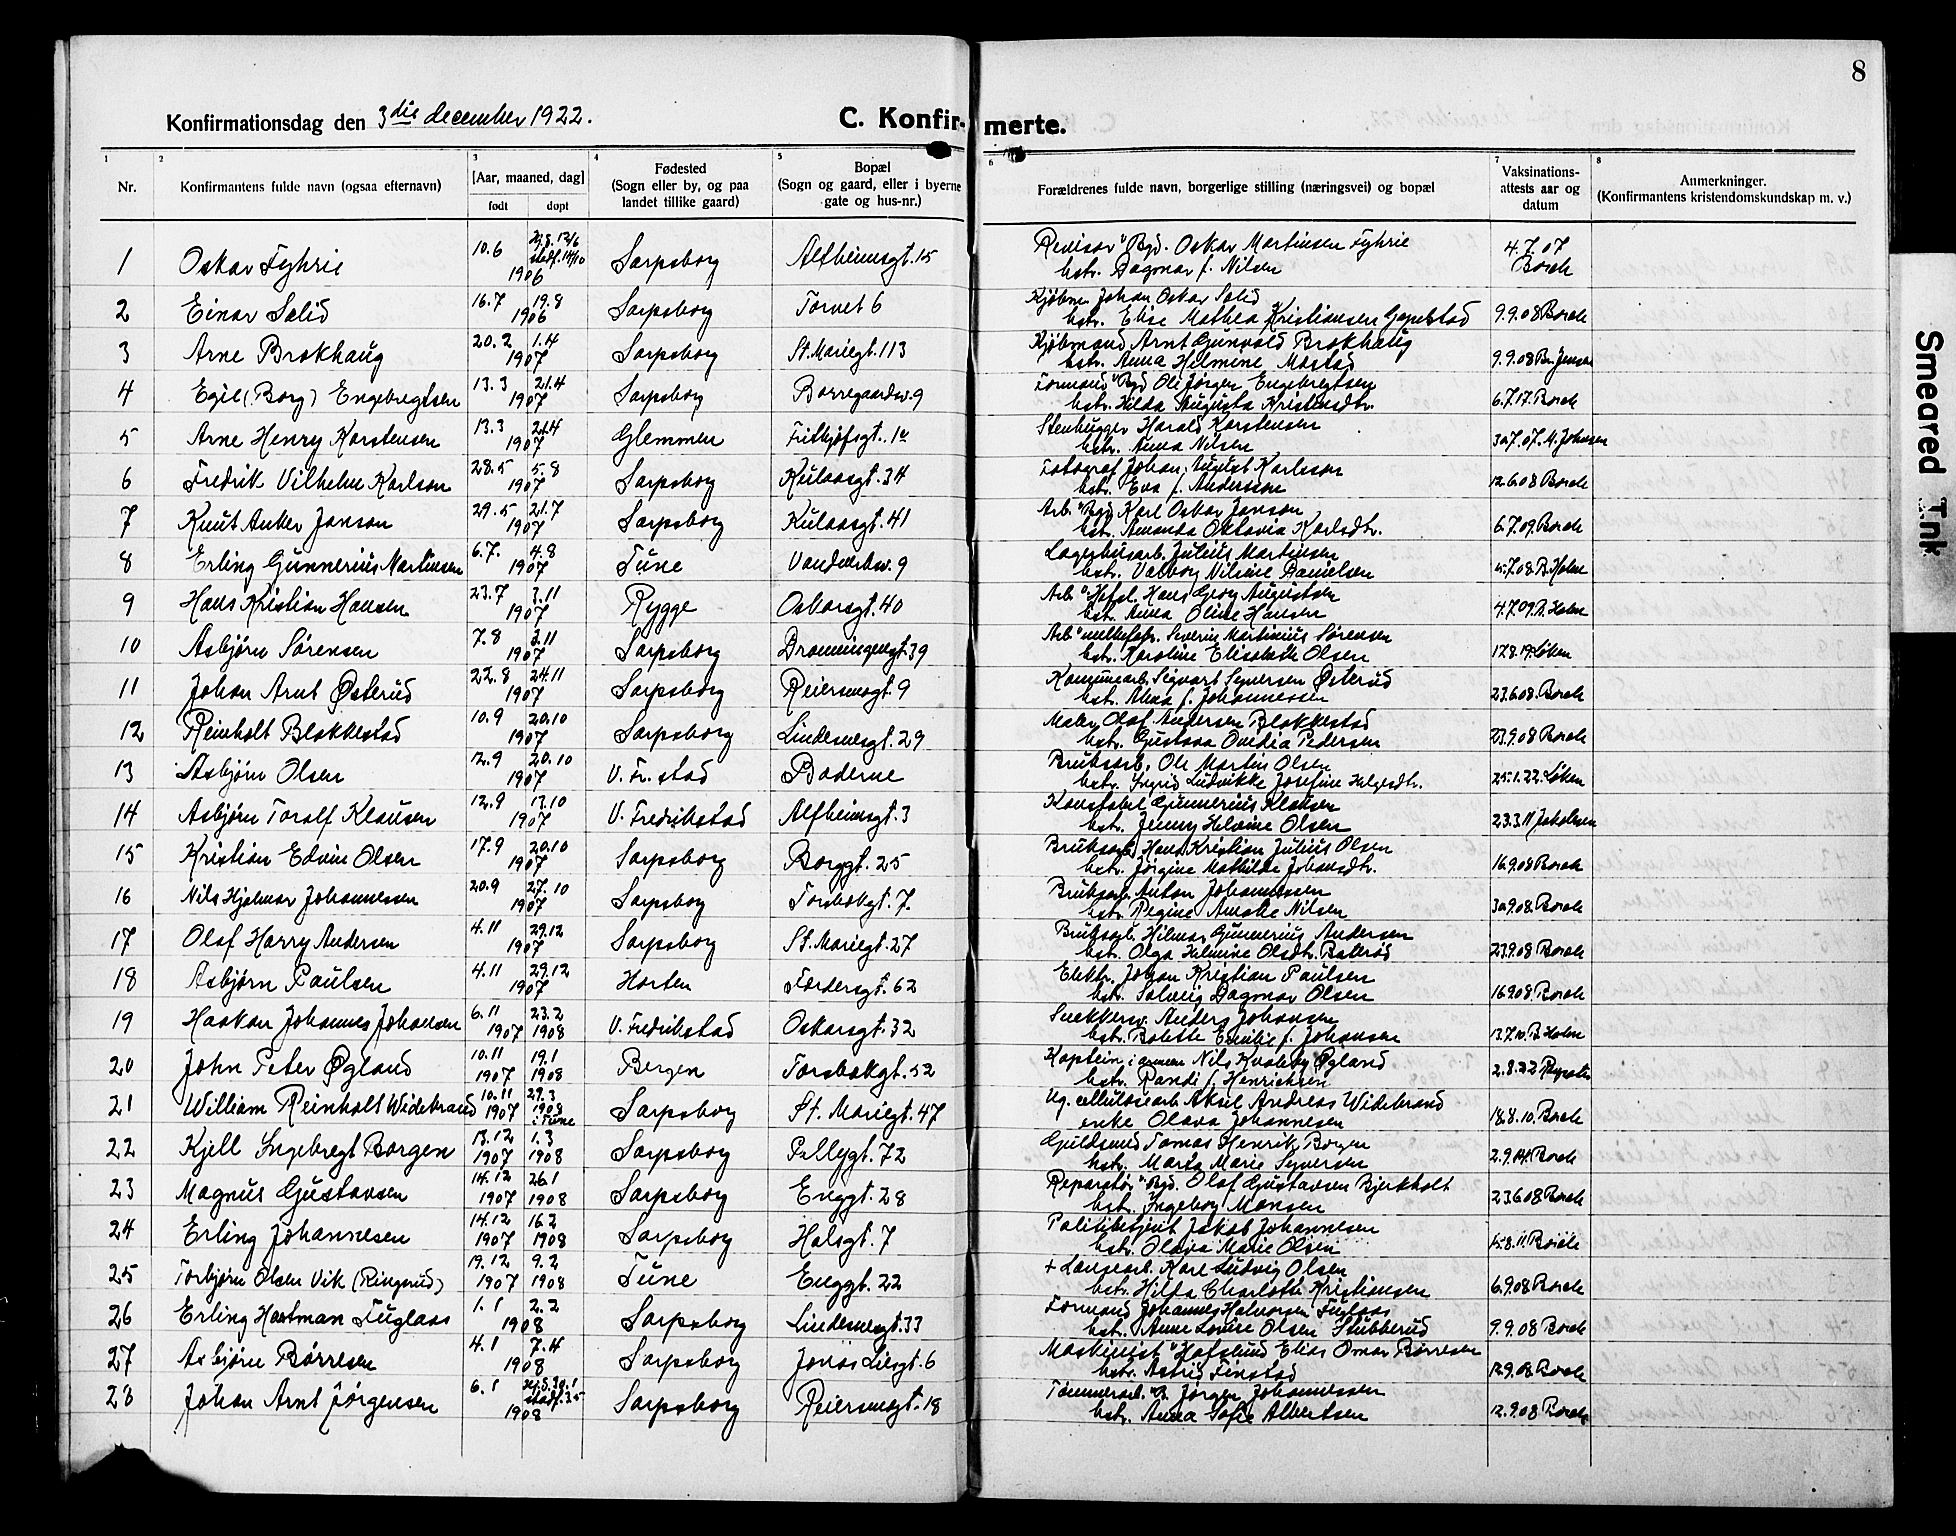 8
Konfirmationsdag den 3die december 1922.
C. Konfirmerte.
Smeared Ink
1 2 3 4 5 6 7 8
Nr. | Konfirmantens fulde navn (ogsaa efternavn) | [Aar, maaned, dag] født døpt | Fødested (Sogn eller by, og paa landet tillike gaard) | Bopæl (Sogn og gaard, eller i byerne gate og hus-nr.) | Forældrenes fulde navn, borgerlige stilling (næringsvei) og bopæl | Vaksinations-attests aar og datum | Anmerkninger. (Konfirmantens kristendomskundskap m. v.)
1 Oskar Fyhrie 10.6 hj.d. 12/6 stadf. 14/10 1906 Sarpsborg Alfheimsgt. 15 Revisor Bgd. Oskar Martinsen Fyhrie
hstr. Dagmar f. Nilsen 4.7.07 Borch
2 Einar Solid 16.7 19.8 1906 Sarpsborg Torvet 6 Kjøbm. Johan Oskar Solid
hstr. Elise Mathea Kristiansen 9.9.08 Borch
3 Arne Brokhaug 20.2 1.4 1907 Sarpsborg St. Mariegt. 113 Kjøbmand Arnt Gunvald Brokhaug
hstr. Anna Helmine Mastad 9.9.08 Br. Jensen
4 Egil (Borg) Engebregtsen 13.3 21.4 1907 Sarpsborg Borregaardsv. 9 Formand Bgd Ole Jørgen Engebregtsen
hstr. Hilda Augusta Kristensdtr. 6.7.17. Borch
5 Arne Henry Karstensen 13.3 21.4 1907 Glemmen Fritjofsgt. Stenhugger Harald Karstensen
hstr. Anna Nilsen 30.7.07. M. Johnsen
6 Fredrik Vilhelm Karlson 28.5 5.8 1907 Sarpsborg Kulaasgt. 34 Fotograf Johan August Karlsson
hstr. Eva f. Andersson 12.6.08 Borch
7 Knut Anker Janson 29.5 21.7 1907 Sarpsborg Kulaasgt. 41 Arb. Bgd Karl Oskar Janson
hstr. Amanda Oktavia Karlsdtr. 6.7.09. Borch
8 Erling Gunnerius Martinsen 6.7. 4.8 1907 Tune Vandverksv. 9 Lagerhusarb. Julius Martinsen
hstr. Valborg Nilsine Danielsen 15.7.08 B. Holm
9 Hans Kristian Hansen 23.7 3.11 1907 Rygge Oskarsgt. 40 Arb. Hafsl. Hans Georg Augustsen
hstr. Anna Oline Hansen 4.7.09. B. Holm
10 Asbjørn Sørensen 7.8 3.11 1907 Sarpsborg Dronningensgt. 39 Arb. Severin Martinius Sørensen
hstr. Karoline Elisabeth Olsen 17.8.19. Løken
11 Johan Arnt Østerud 22.8 24.11 1907 Sarpsborg Reiersensgt. 9 Kommunearb. Sigvart Syversen Østerud
hstr. Anna f. Johannessen 23.6.08. Borch
12 Reinholt Blakkestad 10.9 20.10 1907 Sarpsborg Lindemesgt. 29 Maler Olaf Andersen Blakkestad
hstr. Gustava Ovidia Pedersen 23.9.08 Borch
13 Asbjørn Olsen 12.9 20.10 1907 V. Fr.stad Baderne Bruksarb. Ole Martin Olsen
hstr. Ingrid Ludvikke Josefine Helgesdtr. 25.1.22. Løken
14 Asbjørn Toralf Klausen 12.9 13.10 1907 V. Fredrikstad Alfheimsgt. 3 Konstabel Gunnerius Klausen
hstr. Jenny Helvine Olsen 23.3.11 Jakobsen
15 Kristian Edvin Olsen 17.9 20.10 1907 Sarpsborg Borggt. 25 Bruksarb. Hans Kristian Julius Olsen
hstr. Jørgine Mathilde Johansdtr. 16.9.08 Borch
16 Nils Hjalmar Johannessen 20.9 27.10 1907 Sarpsborg Torsbækgt. 7. Bruksarb. Anton Johannessen
hstr. Regine Amalie Nilsen 30.9.08. Borch
17 Olaf Harry Andersen 4.11 29.12 1907 Sarpsborg St. Mariegt. 27 Bruksarb. Hilmar Gunnerius Andersen
hstr. Olga Helmine Olsdtr. 23.9.08 Borch
18 Asbjørn Paulsen 4.11 29.12 1907 Horten Færdersgt. 62 Elektr. Johan Kristian Paulsen
hstr. Solveig Dagmar Olsen 16.9.08. Borch
19 Haakon Johannes Johansen 6.11 1907 23.2 1908 V. Fredrikstad Oskarsgt. 32 Snekkersv. Anders Johansen
hstr. Bolette Emilie f. Johansen 13.7.10. B. Holm
20 John Peter Øgland 10.11 1907 19.1 1908 Bergen Torsbækgt. 52 Kaptein i armeen Nils Øgland
hstr. Randi f. Henrichsen 2.8.22
21 William Reinholt Widebrand 10.11 1907 29.3 1908 i Tune Sarpsborg St. Mariegt. 47 Ug. cellulosearb. Aksel Andreas Widebrand
enke Olava Johannesen 18.8.10. Borch
22 Kjell Ingebregt Borgen 13.12 1907 1.3 1908 Sarpsborg Pellygt. 72 Guldsmed Tomas Henrik Borgen
hstr. Marta Marie Syversen 2.9.14. Borch
23 Magnus Gustavsen 14.12 1907 26.1 1908 Sarpsborg Enggt. 28 Reparatør Bgd. Olaf Gustavsen Bjerkholt
hstr. Ingeborg Monsen 23.6.08 Borch
24 Erling Johannesen 14.12 1907 16.2 1908 Sarpsborg Halsgt. 7 Politibetjent Jakob Johannesen
hstr. Olava Marie Olsen 15.8.11. Borch
25 Torbjørn Olsen Vik (Ringrud) 19.12 1907 9.2 1908 Tune Enggt. 22 + Lænsearb. Karl Ludvig Olsen
hstr. Hilda Charlotte Kristiansen 6.9.08 Borch
26 Erling Hartman Fuglaas 1.1 2.2 1908 Sarpsborg Lindemesgt. 33 Formand Johannes Halvorsen Fuglaas
hstr. Anne Lovise Olsen Stubberud 9.9.08 Borch
27 Asbjørn Børresen 4.1 7.4 1908 Sarpsborg Jonas Liesgt. 6 Maskinist Hafslund Elias Omar Børresen
hstr. Astrid Finstad 12.9.08 Borch
28 Johan Arnt Jørgensen 6.1 hj.d. 30.1 stadf. 3.5 1908 Sarpsborg Reiersensgt. 18 Tømmerarb. B. Jørgen Johannessen
hstr. Anna Sofie Albertsen 12.9.08 Borch